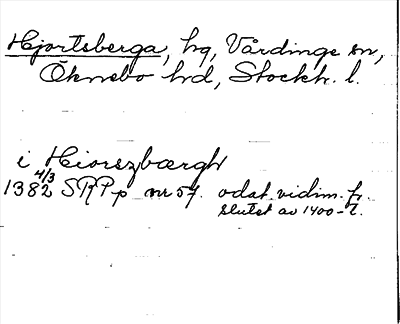 Hjortsberga, hg, Vårdinge sn,
Öknebo hd, Stockh. l.
i Hiorezbærgh
1382 4/3 SRPp nr 57. odat. vidim. fr.
slutet av 1400-t.